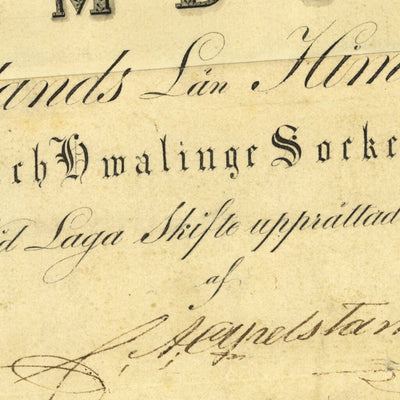 M
ands Län Him
ch Hwalinge Socke
id Laga Skifte upprättad
af